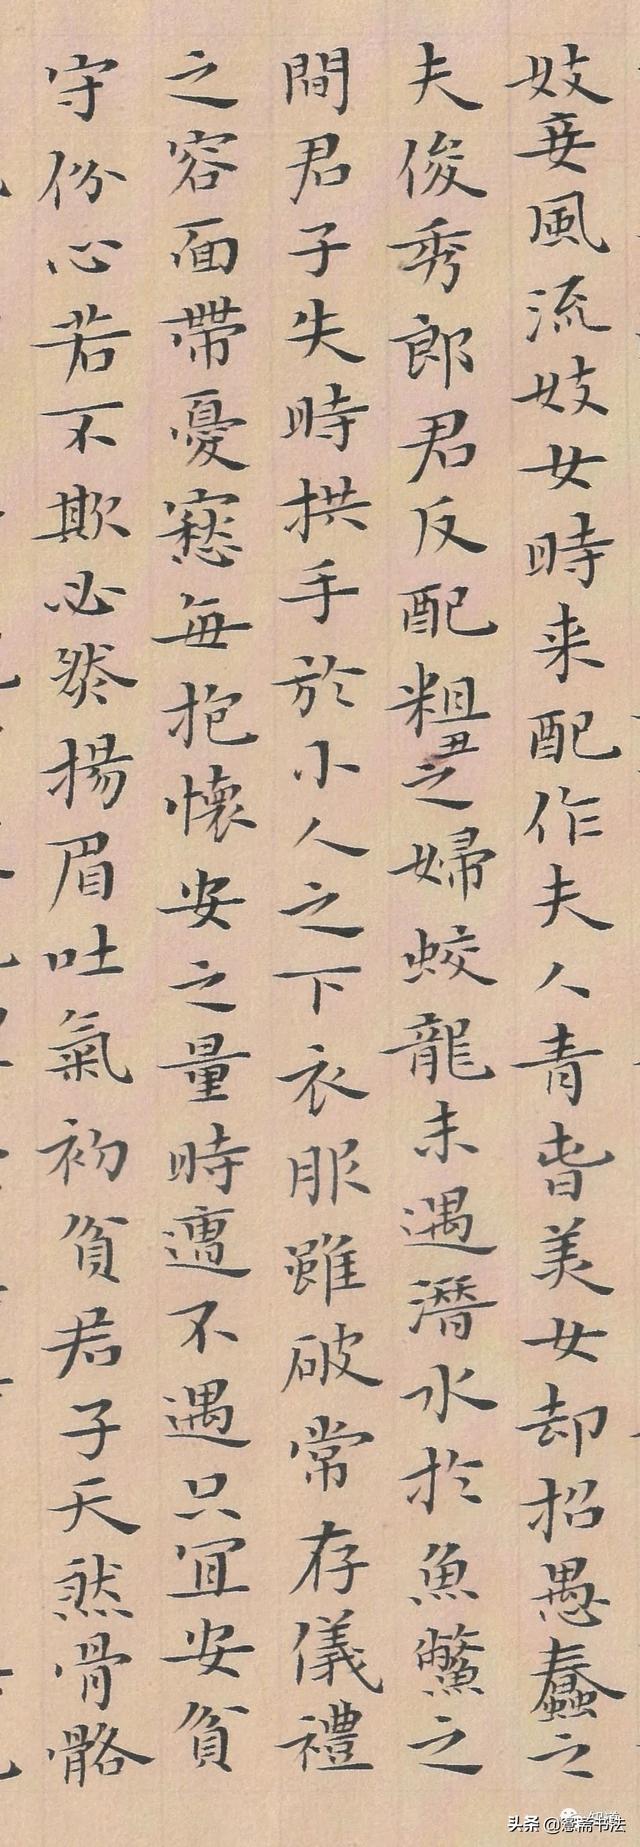 妓妾風流妓女時来配作夫人青旾美女却招愚蠢之
夫俊秀郎君反配粗丑之婦蛟龍未遇潛水於魚鱉之
間君子失時拱手於小人之下衣服雖破常存儀禮
之容面帶憂愁每抱懷安之量時遭不遇只宜安貧
守份心若不欺必然揚眉吐氣初貧君子天然骨骼
头条 @斋书法